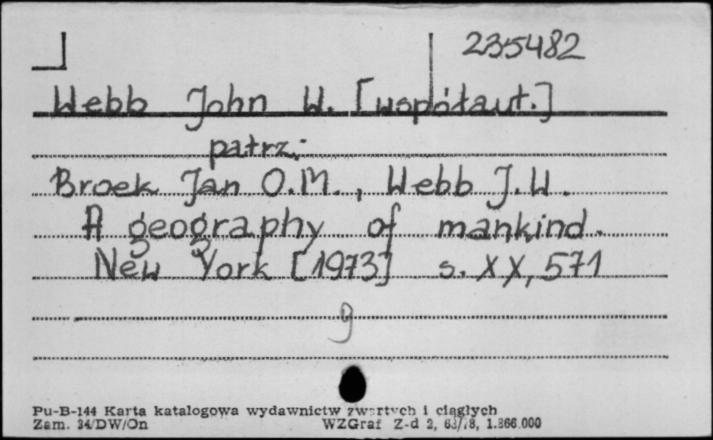 235482
Webb John W. [współaut.]
patrz:
Broek Jan O.M., Webb J.W.
A geography of mankind.
New York [1973] s. XX, 571
g
Pu-B-144 Karta katalogowa wydawnictw zwartych i ciągłych
Zam. 34/DW/On WZGraf Z-d 2, 1.866.000